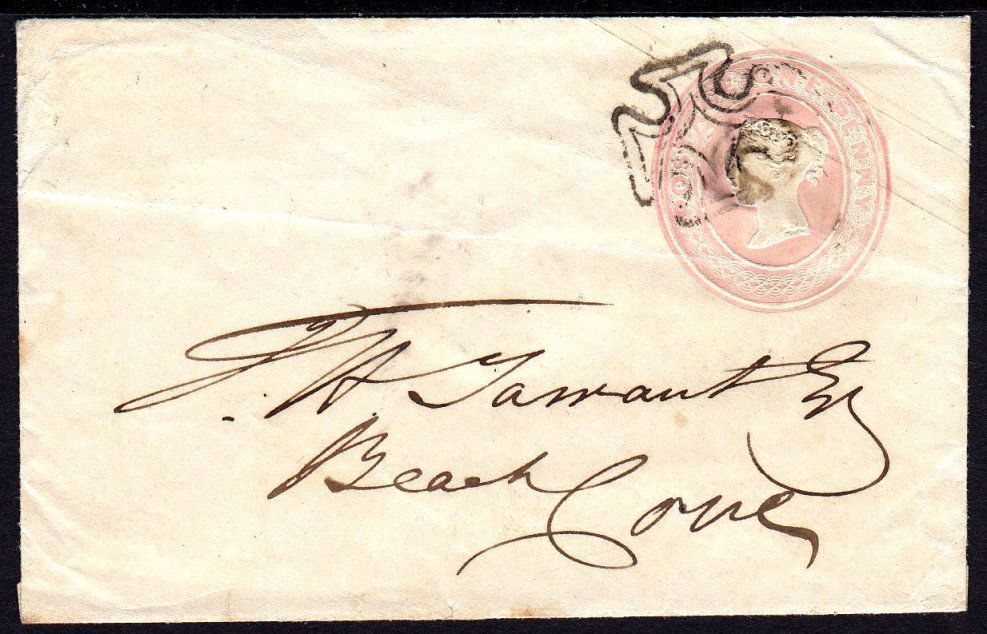 POSTAGE ONE PENNY
T. H. Tarrant Esq
Beach